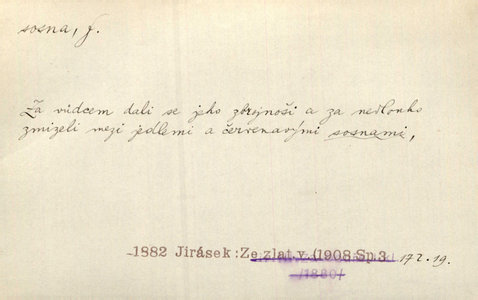 sosna, f.
Za vůdcem dali se jeho zbrojnoši a za nedlouho
zmizeli mezi jedlemi a červenavými sosnami,
-1882 Jirásek: Ze zlat.v.(1908 Sp.3 172.19.
/1880/